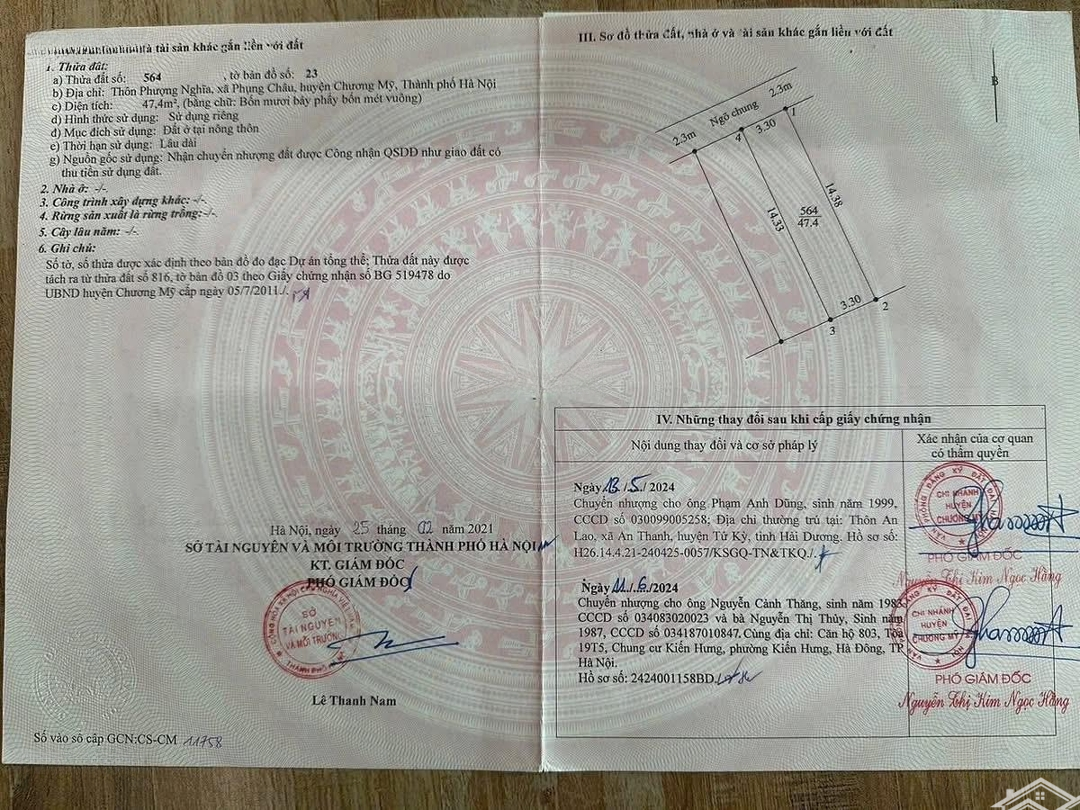 tài sản khác gắn liền với đất
1. Thửa đất:
a) Thửa đất số: 564 , tờ bản đồ số: 23
b) Địa chỉ: Thôn Phượng Nghĩa, xã Phụng Châu, huyện Chương Mỹ, Thành phố Hà Nội
c) Diện tích: 47,4m², (bằng chữ: Bốn mươi bảy phẩy bốn mét vuông)
d) Hình thức sử dụng: Sử dụng riêng
đ) Mục đích sử dụng: Đất ở tại nông thôn
e) Thời hạn sử dụng: Lâu dài
g) Nguồn gốc sử dụng: Nhận chuyển nhượng đất được Công nhận QSDĐ như giao đất có
thu tiền sử dụng đất.
2. Nhà ở: -/-.
3. Công trình xây dựng khác: -/-.
4. Rừng sản xuất là rừng trồng:-/-.
5. Cây lâu năm: -/-.
6. Ghi chú:
Số tờ, số thửa được xác định theo bản đồ đo đạc Dự án tổng thể; Thửa đất này được
tách ra từ thửa đất số 816, tờ bản đồ 03 theo Giấy chứng nhận số BG 519478 do
UBND huyện Chương Mỹ cấp ngày 05/7/2011./.
Hà Nội, ngày 25 tháng 02 năm 2021
SỞ TÀI NGUYÊN VÀ MÔI TRƯỜNG THÀNH PHỐ HÀ NỘI
KT. GIÁM ĐỐC
PHÓ GIÁM ĐỐC
SỞ
TÀI NGUYÊN
VÀ MÔI TRƯỜNG
Lê Thanh Nam
Số vào sổ cấp GCN:CS-CM 11758
III. Sơ đồ thửa đất, nhà ở và tài sản khác gắn liền với đất
B
2.3m Ngõ chung 2.3m
4 3.30 1
14.33
564
47.4
14.38
3 3.30 2
IV. Những thay đổi sau khi cấp giấy chứng nhận
Nội dung thay đổi và cơ sở pháp lý
Xác nhận của cơ quan
có thẩm quyền
Ngày 13/5/2024
Chuyển nhượng cho ông Phạm Anh Dũng, sinh năm 1999,
CCCD số 030099005258; Địa chỉ thường trú tại: Thôn An
Lao, xã An Thanh, huyện Tứ Kỳ, tỉnh Hải Dương. Hồ sơ số:
H26.14.4.21-240425-0057/KSGQ-TN&TKQ./.
CHI NHÁNH
HUYỆN
CHƯƠNG MỸ
PHÓ GIÁM ĐỐC
Nguyễn Thị Kim Ngọc Hằng
Ngày 11/6/2024
Chuyển nhượng cho ông Nguyễn Cảnh Thăng, sinh năm 1983
CCCD số 034083020023 và bà Nguyễn Thị Thủy, Sinh năm
1987, CCCD số 034187010847. Cùng địa chỉ: Căn hộ 803, Tòa
19T5, Chung cư Kiến Hưng, phường Kiến Hưng, Hà Đông, TP
Hà Nội.
Hồ sơ số: 2424001158BD.
CHI NHÁNH
HUYỆN
CHƯƠNG MỸ
PHÓ GIÁM ĐỐC
Nguyễn Thị Kim Ngọc Hằng